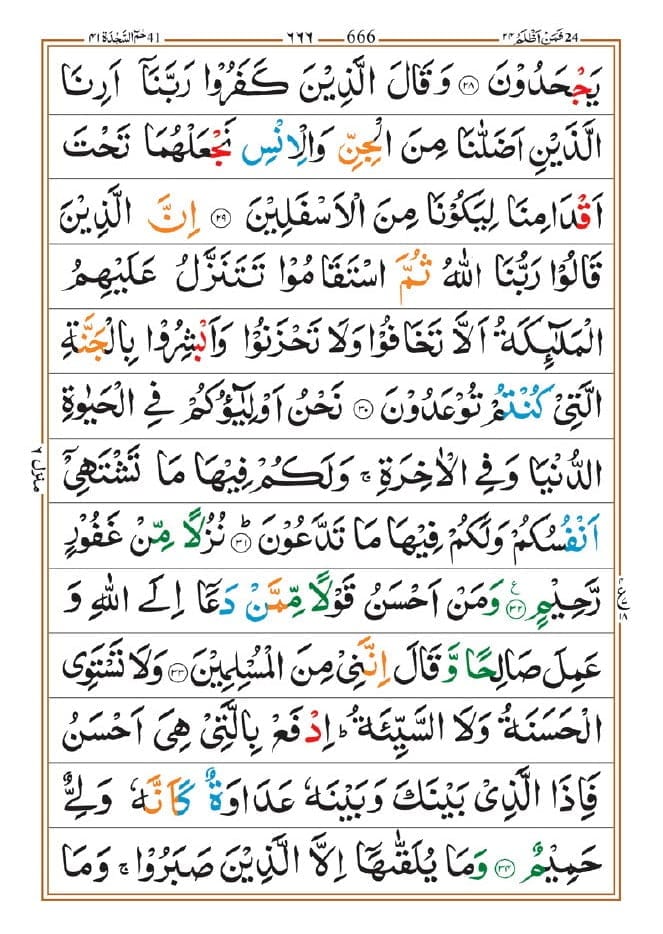 24 فَمَنْ اَظْلَمُ ۲۴ 666 ٦٦٦ 41 حٰمٓ السَّجْدَة ۴۱
يَجْحَدُوْنَ ۝۲۸ وَقَالَ الَّذِيْنَ كَفَرُوْا رَبَّنَاۤ اَرِنَا
الَّذَيْنِ اَضَلّٰنَا مِنَ الْجِنِّ وَالْاِنْسِ نَجْعَلْهُمَا تَحْتَ
اَقْدَامِنَا لِيَكُوْنَا مِنَ الْاَسْفَلِيْنَ ۝۲۹ اِنَّ الَّذِيْنَ
قَالُوْا رَبُّنَا اللهُ ثُمَّ اسْتَقَامُوْا تَتَنَزَّلُ عَلَيْهِمُ
الْمَلٰٓئِكَةُ اَلَّا تَخَافُوْا وَلَا تَحْزَنُوْا وَاَبْشِرُوْا بِالْجَنَّةِ
الَّتِيْ كُنْتُمْ تُوْعَدُوْنَ ۝۳۰ نَحْنُ اَوْلِيٰٓؤُكُمْ فِي الْحَيٰوةِ
الدُّنْيَا وَفِي الْاٰخِرَةِ ۚ وَلَكُمْ فِيْهَا مَا تَشْتَهِيْۤ
اَنْفُسُكُمْ وَلَكُمْ فِيْهَا مَا تَدَّعُوْنَ ۝۳۱ؕ نُزُلًا مِّنْ غَفُوْرٍ
رَّحِيْمٍ ۝۳۲ۧ وَمَنْ اَحْسَنُ قَوْلًا مِّمَّنْ دَعَاۤ اِلَى اللهِ وَ
عَمِلَ صَالِحًا وَّقَالَ اِنَّنِيْ مِنَ الْمُسْلِمِيْنَ ۝۳۳ وَلَا تَسْتَوِي
الْحَسَنَةُ وَلَا السَّيِّئَةُ ؕ اِدْفَعْ بِالَّتِيْ هِيَ اَحْسَنُ
فَاِذَا الَّذِيْ بَيْنَكَ وَبَيْنَهٗ عَدَاوَةٌ كَاَنَّهٗ وَلِيٌّ
حَمِيْمٌ ۝۳۴ وَمَا يُلَقّٰىهَاۤ اِلَّا الَّذِيْنَ صَبَرُوْا ۚ وَمَا
منزل ٦